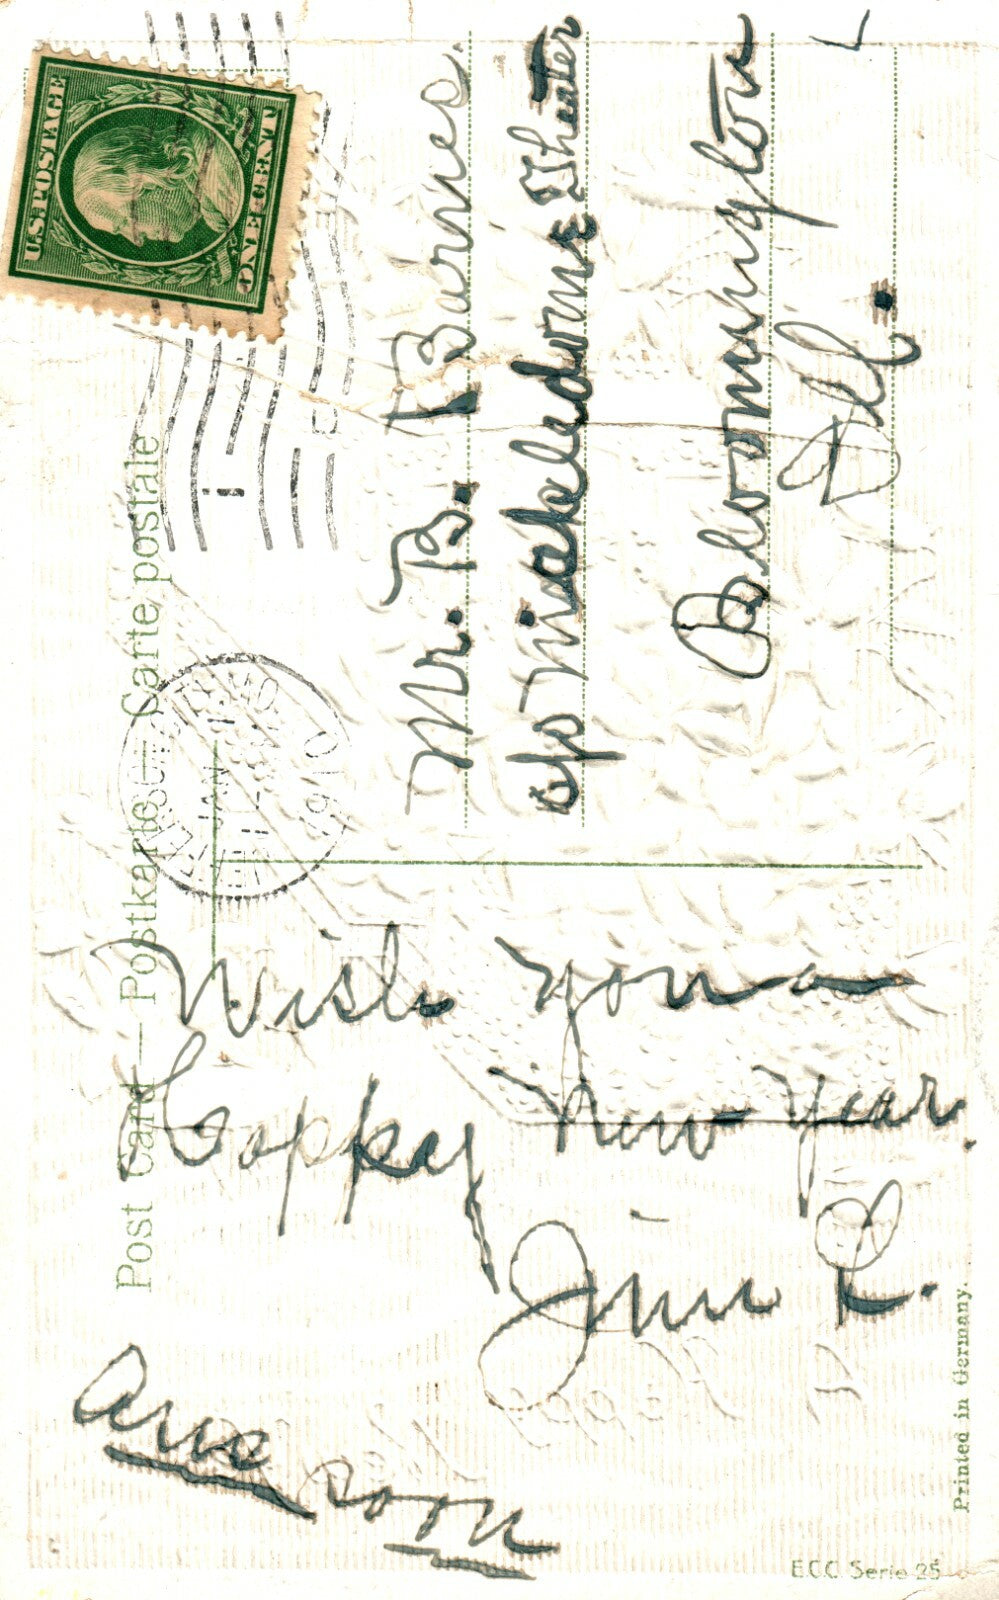 Post Card — Postkarte — Carte postale
U.S. POSTAGE
ONE CENT
JAN
11
1910
MO.
Mr. B. Barnes.
c/o Theater
Bloomington
Ill.
Wish you a
Happy New Year.
Jim R.
Ans soon
Printed in Germany.
ECC Serie 25